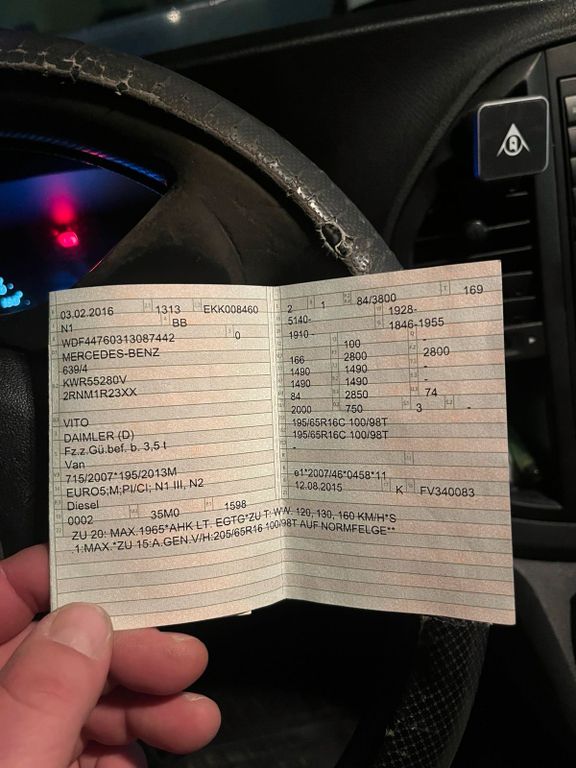 03.02.2016 1313 EKK008460
N1 BB
WDF44760313087442 0
MERCEDES-BENZ
639/4
KWR55280V
2RNM1R23XX
VITO
DAIMLER (D)
Fz.z.Gü.bef. b. 3,5 t
Van
715/2007*195/2013M
EURO5;M;PI/CI; N1 III, N2
Diesel
0002 35M0 1598
2 1 84/3800 169
5140- 1928-
1910- 1846-1955
100 -
166 2800 2800
1490 1490 -
1490 1490 -
84 2850 74
2000 750 3 -
195/65R16C 100/98T
195/65R16C 100/98T
-
e1*2007/46*0458*11
12.08.2015 K FV340083
ZU 20: MAX.1965*AHK LT. EGTG*ZU T: WW. 120, 130, 160 KM/H*S
.1:MAX.*ZU 15:A.GEN.V/H:205/65R16 100/98T AUF NORMFELGE**